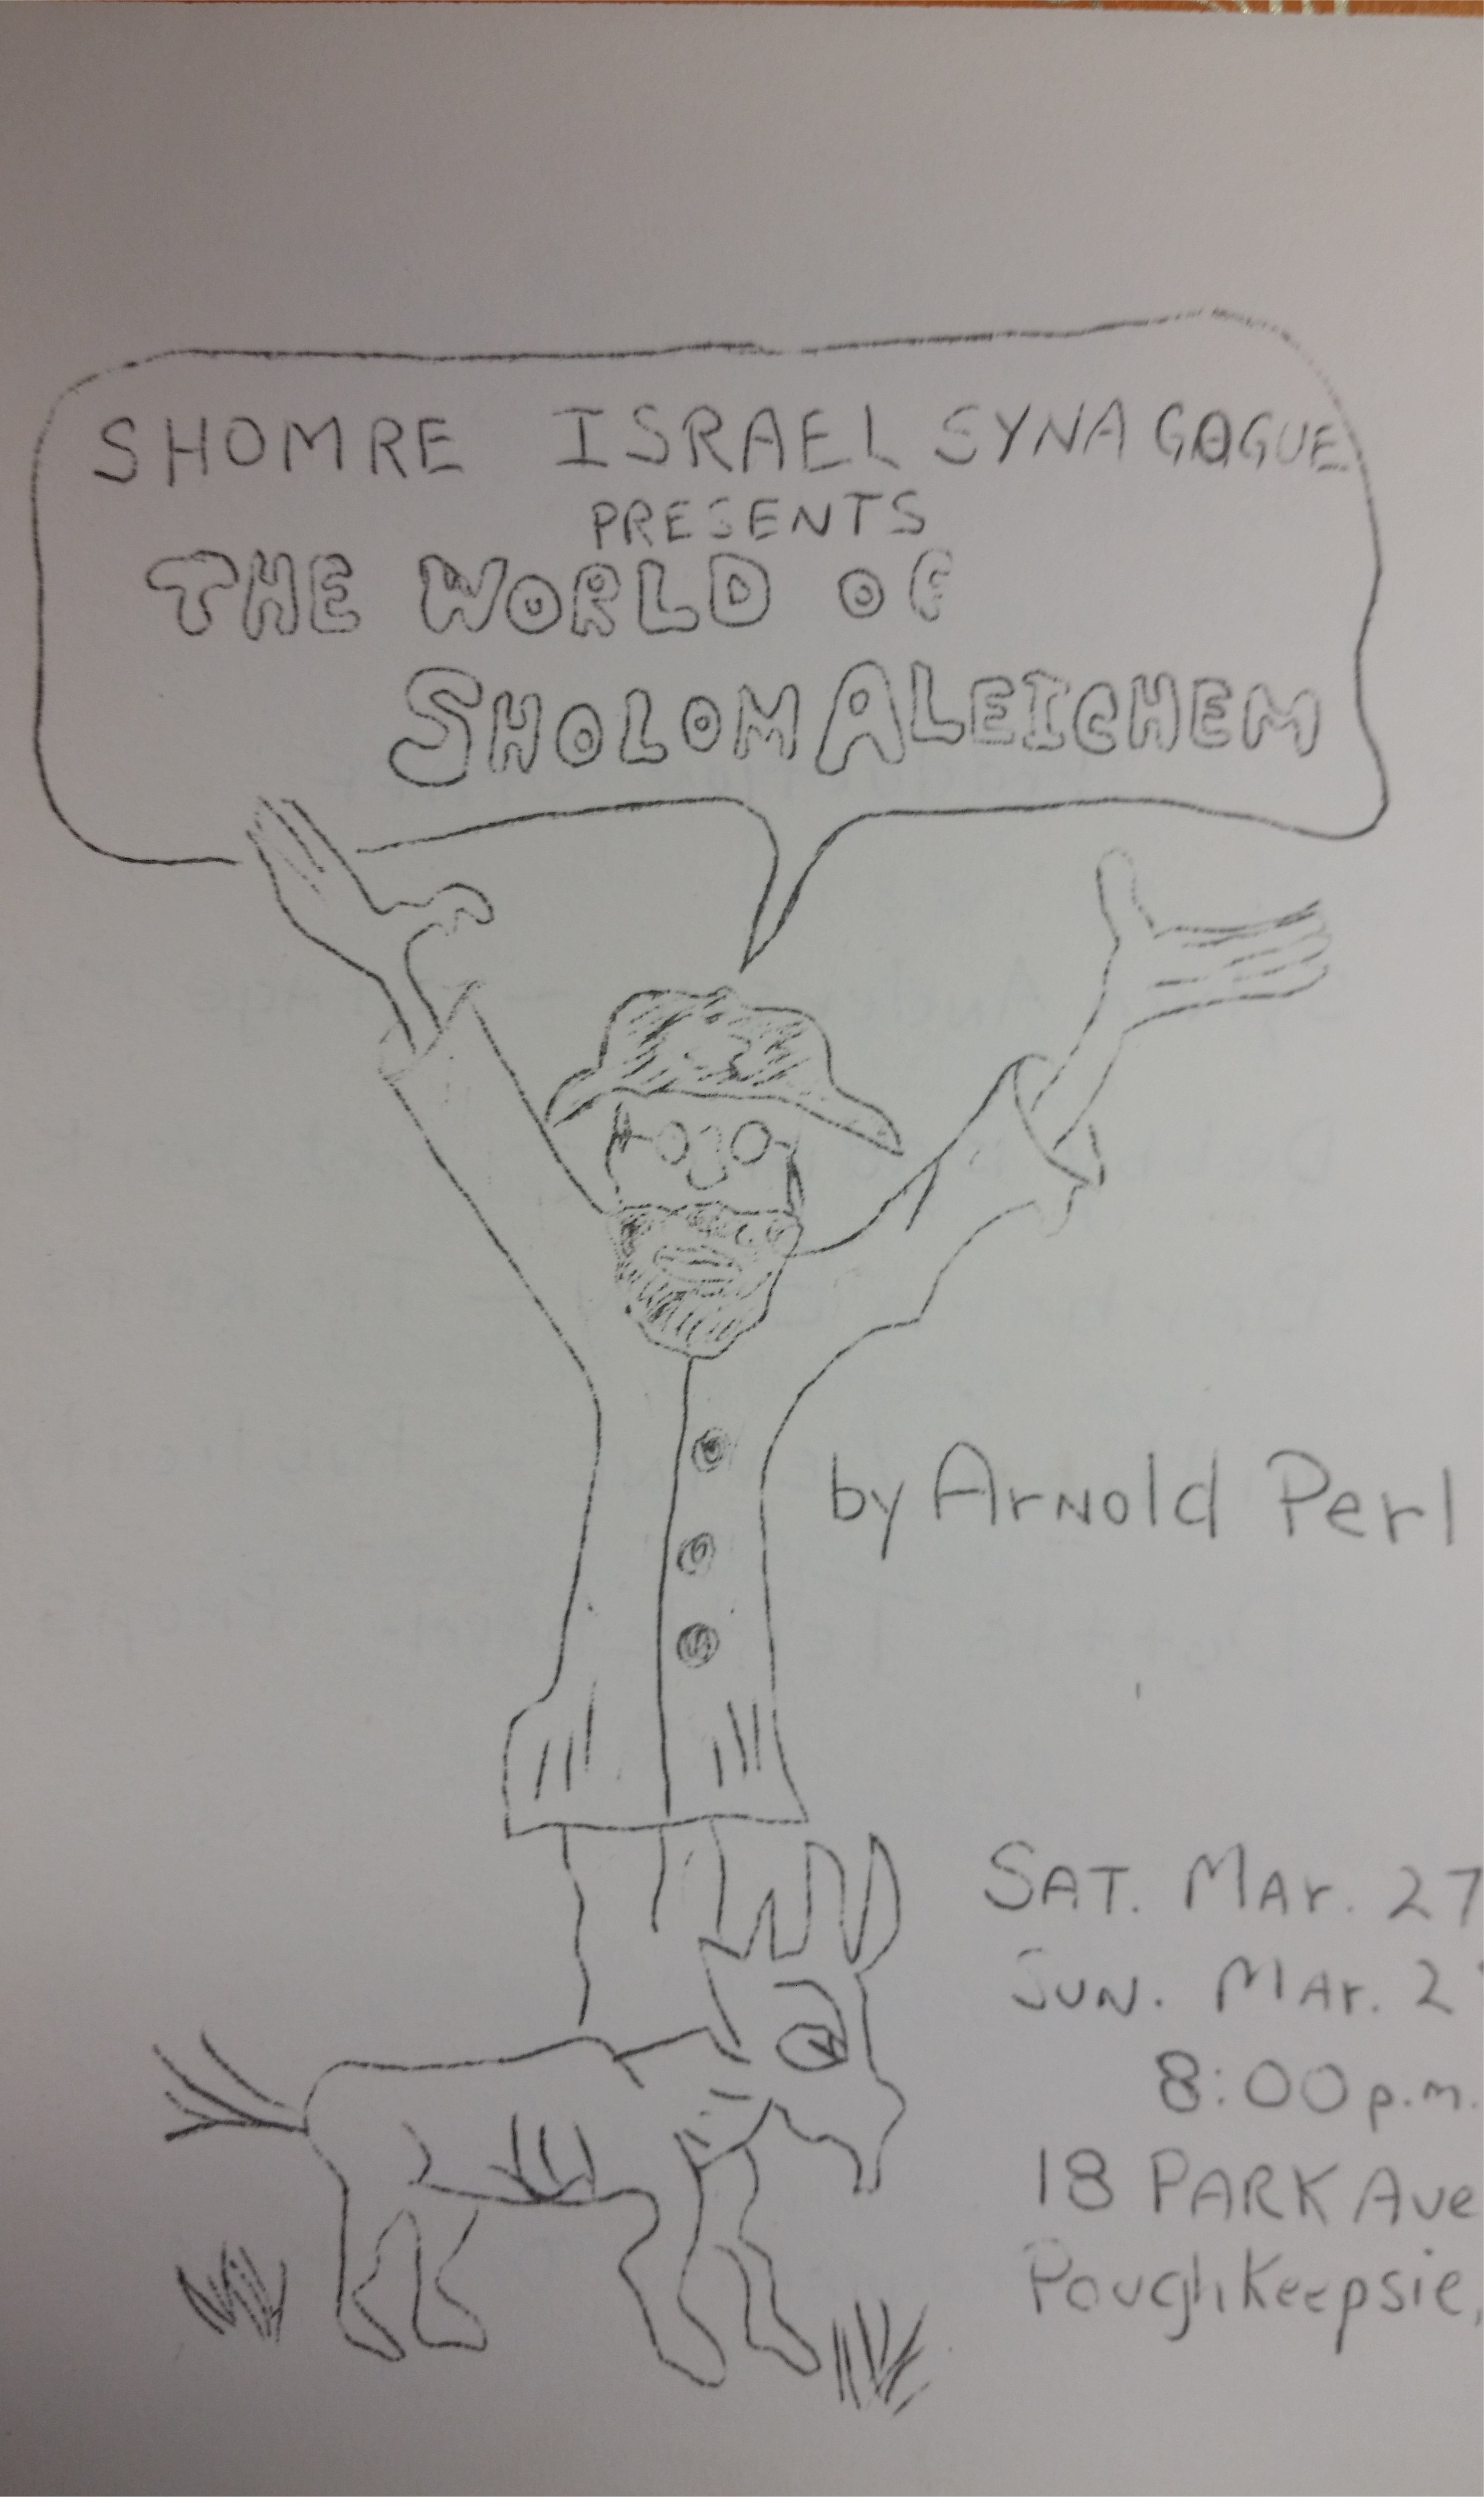 SHOMRE ISRAEL SYNAGOGUE
PRESENTS
THE WORLD OF
SHOLOM ALEICHEM
by Arnold Perl
SAT. MAr. 27
SUN. MAr. 2
8:00 p.m.
18 PARK Ave
PoughKeepsie,